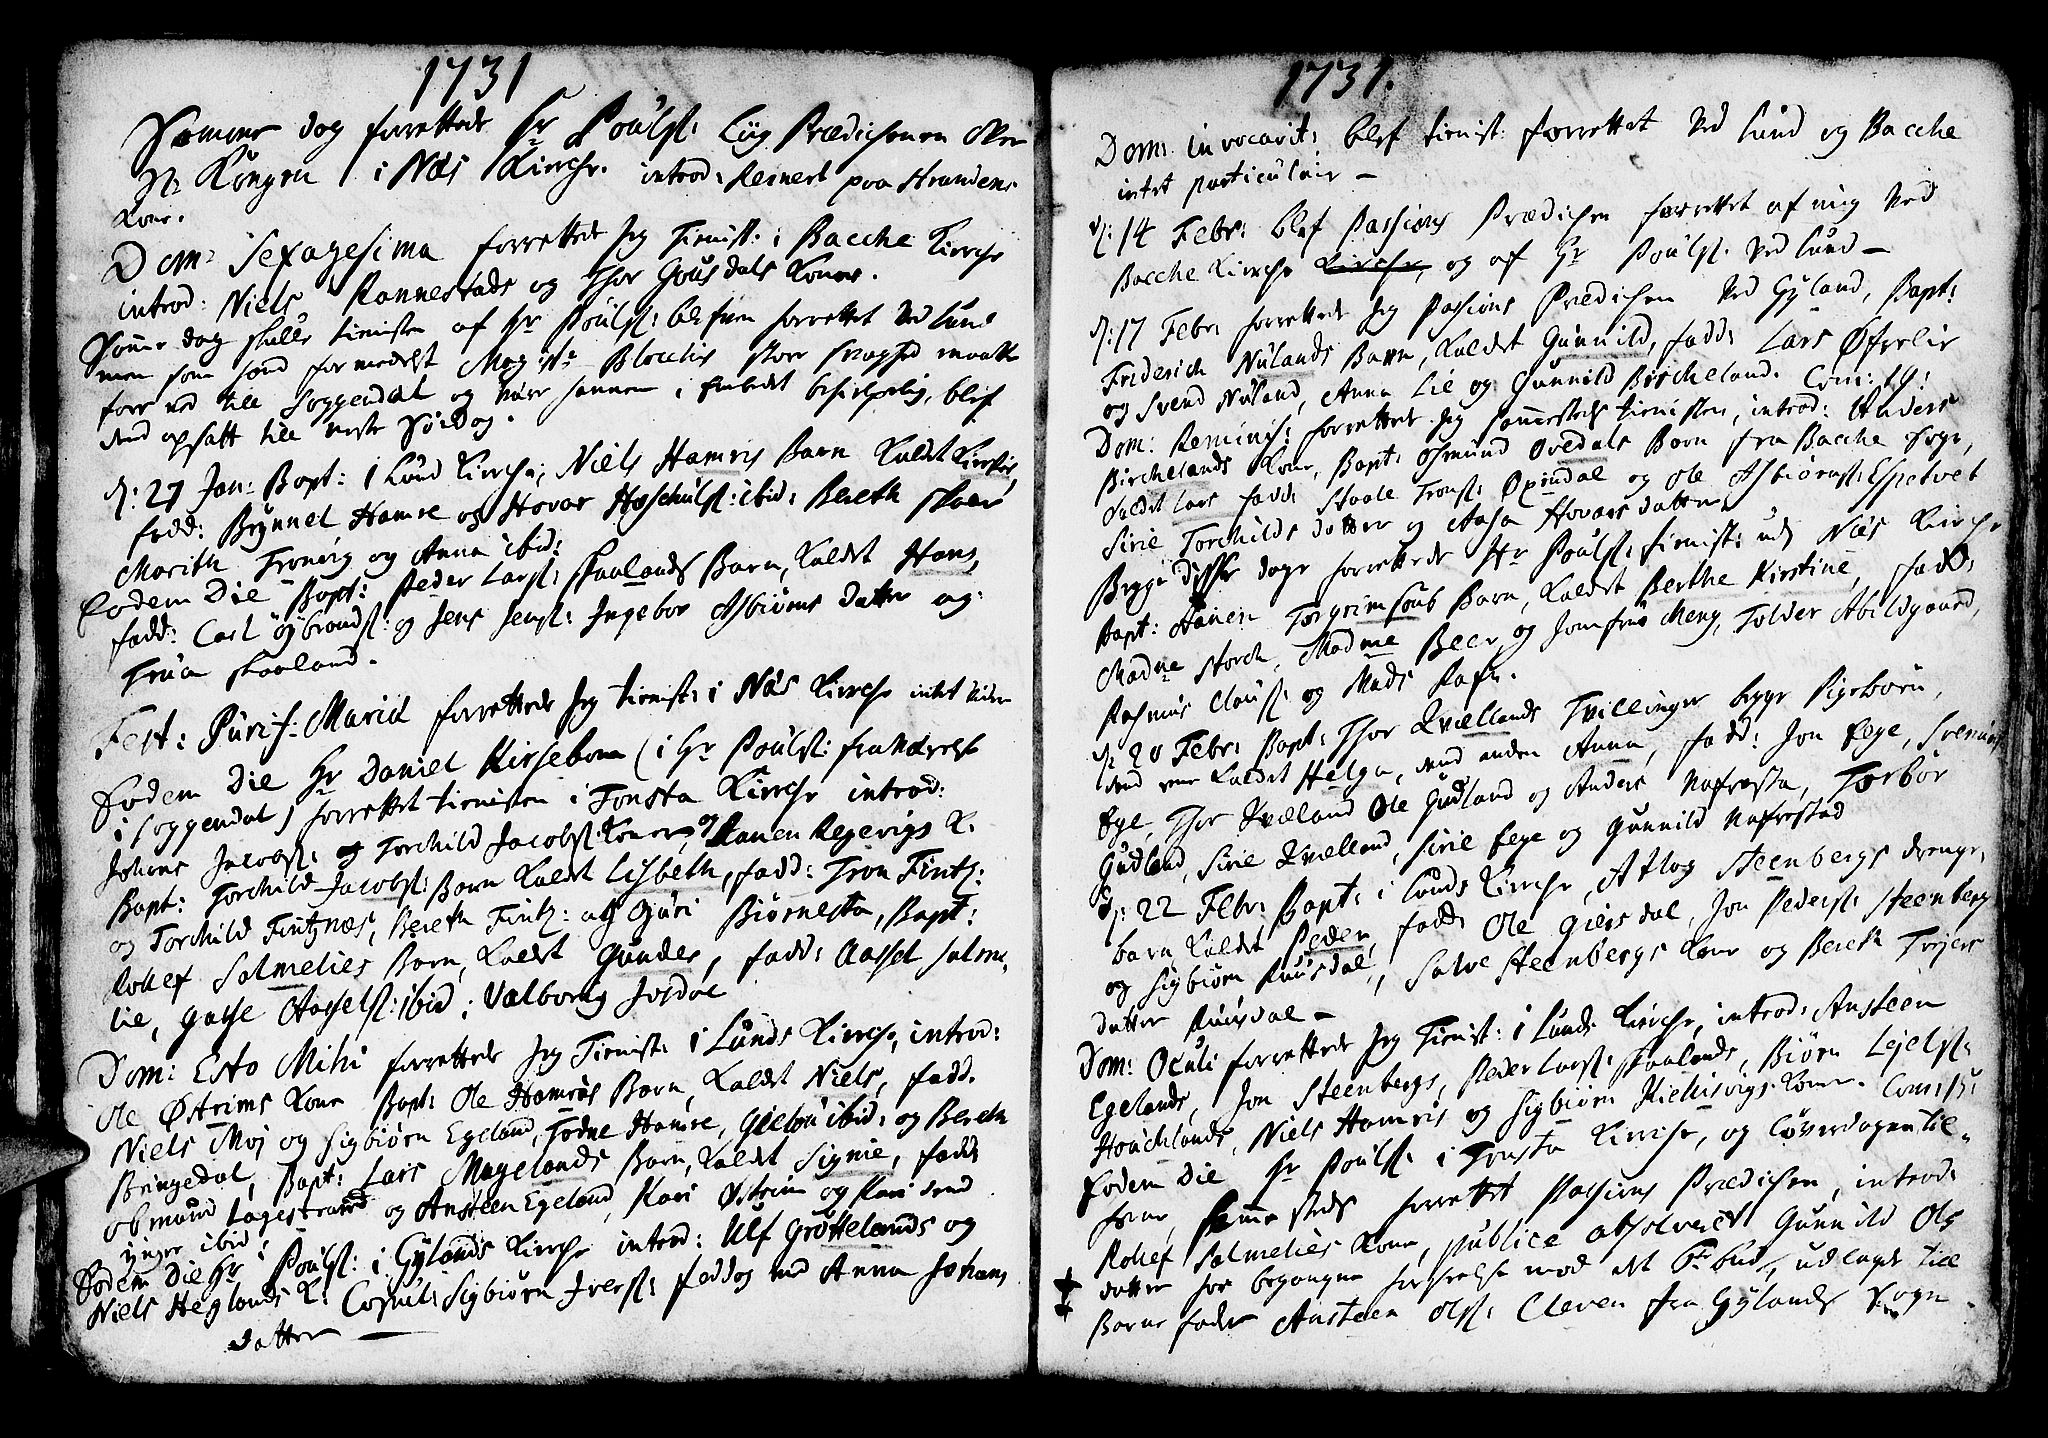 1731
Samme dag forrettede Hr Poulss: Liig Prædichenen ofver
Kongen i Næs Kirche. introd: Reinert paa Strandens
Kone.
Dom: Sexagesima forrettede Jeg Tienist: i Bacche Kirche
introd: Niels Rannestads og Thor Gousdals Koner.
Samme dag skulle tienisten af Hr Poulss: blefven forrettet Ved Lund
men som hand formedelst Magist: Blochis store svaghed maatte
fare ned till Soggendal og være hannem i Embedet behielpelig, blef
dend opsatt till neste Søndag.
d: 27 Jan: Bapt: i Lund Kirche; Niels Hamris Barn Kaldet Kirsten
fadd: Brynnel Hamre og Hovar Hoschulss: ibid: Bereth
Marith Troneig og Anna ibid:
Eodem Die Bapt: Peder Larss: Skaalands Barn, Kaldet Hans,
fadd: Carl Gybrandss: og Jens Jenss: Ingebor Asbiørns datter og
Trua Skaaland.
Fest: Purif: Mariæ forrettede Jeg tienist: i Næs Kirche intet videre
Eodem Die Hr Daniel Kirsebom (i Hr Poulss: fraværelse
i Soggendal) forrettet tienisten i Tonsta Kirche introd:
Johans Jacobss: og Torchild Jacobss: Koner, og Rauen Regevigs K.
Bapt: Torchild Jacobss: Barn Kaldet Lisbeth, fadd: Tron Fintz:
og Torchild Fintznæs, Bereth Fintz: og Guri Biørnesta, Bapt:
Rollef Salmelies Barn, Kaldet Gunder, fadd: Aasset Salme-
lie, Gasse Aasselss: ibid: Valborig Josdal
Dom: Esto Mihi forrettede Jeg Tienist: i Lunds Kirche, introd:
Ole Østrims Kone Bapt: Ole Hamrås Barn, Kaldet Niels, fadd.
Niels Moj og Sigbiørn Egeland, Todne Hamre, Gieloü ibid: og Bereth
Bringedal, Bapt: Lars Mageland Barn, Kaldet Signie, fadd:
Obmund Lagestrand og Ansteen Egeland, Kari Østrim og Kari
ibid:
Eodem Die Hr Poulss: i Gylands Kirche introd: Ulf Grøttelands og
Niels Heglands K: Copul: Sigbiørn Iverss: Feddog med Anna Johans
datter —
1731.
Dom: invocavit: blef tienist: forrettet Ved Lund og Bacche
intet particulair —
d: 14 Febr: blef Passions Prædichen forrettet af mig Ved
Bacche Kirche Kirche, og af Hr Poulss: Ved Lund —
d: 17 Febr: forrettede Jeg Passions Prædichen Ved Gyland, Bapt:
Friderich Nulands Barn, Kaldet Gunnild, fadd: Lars Øfrelie
og Svend Nuland, Anna Lie og Gunnild Bircheland. Com: 19:
Dom: Reminis: forrettede Jeg sammesteds tienisten, introd: Anders
Birchelands Kone, Bapt: Osmund Ovedals Barn fra Bacche Sogn,
Kaldet Lars fadd: Staale Tronss: Opindal og Ole Asbiørnss: Espetvet
Sirie Torchilds datter og Aasa Hovars datter.
Begge disse dage forrettede Hr Poulss: tienist: udj Næs Kirche
Bapt: Hanen Torgrimsens Barn, Kaldet Berthe Kirstine, fadd:
Madme Storch, Madme Beer, og Jomfrue Meng, Tolder Abildgaard,
Rasmus Clauss: og Mads Rafn.
d: 20 Febr: Bapt: Thor Kvællands Tvillinger begge Pigebørn,
dend eene Kaldet Helga, dend anden Anna, fadd: Jon Ege, Svenung
Ege, Thor Kvæland Ole Gudland og Anders Nafresta, Torbor
Gudland, Sirie Kvælland, Sirie Ege og Gunnild Nafrestad
d: 22 Febr: Bapt: i Lunds Kirche, Atlog Steenbergs drenge-
barn Kaldet Peder, fadd: Ole Giersdal, Jon Pederss: Steenberg
og Sigbiørn Ruusdal, Salve Steenbergs Kone og Bereth Tryes
datter Ruusdal —
Dom: Oculi forrettede Jeg Tienist: i Lunds Kirche, introd: Ansteen
Egelands, Jon Steenbergs, Peder Larss: Skaalands, Biørn Lejelss:
Houchlands, Niels Hamris og Sigbiørn Kielisvigs Koner. Com:
Eodem Die Hr Poulss: i Tonsta Kirche, og Løverdagen til-
forne, samme steds forrettet Passions Prædichen, introd:
Rollef Salmelies Kone, publice absolveret Gunnild Ols
datter for begangne forseelse mod det 6te bud, udlagt till
Barne fader Ansteen Olss: Cleven fra Gylands Sogn.